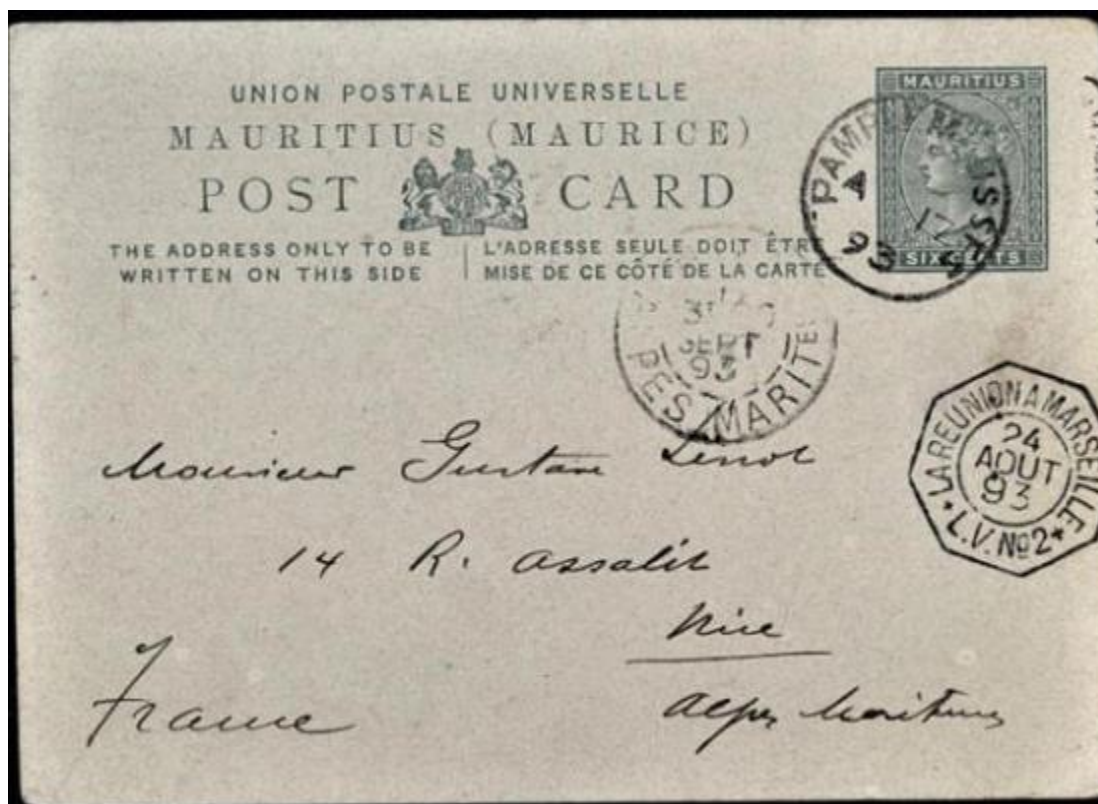 UNION POSTALE UNIVERSELLE
MAURITIUS (MAURICE)
POST CARD
THE ADDRESS ONLY TO BE
WRITTEN ON THIS SIDE
L'ADRESSE SEULE DOIT ÊTRE
MISE DE CE CÔTÉ DE LA CARTE
MAURITIUS
SIX CENTS
A
17
93
SEPT
93
PES MARITI
LA REUNION A MARSEILLE
24
AOUT
93
L.V. No 2
Monsieur Gustave
14 R. Assalit
Nice
France
Alpes Maritimes